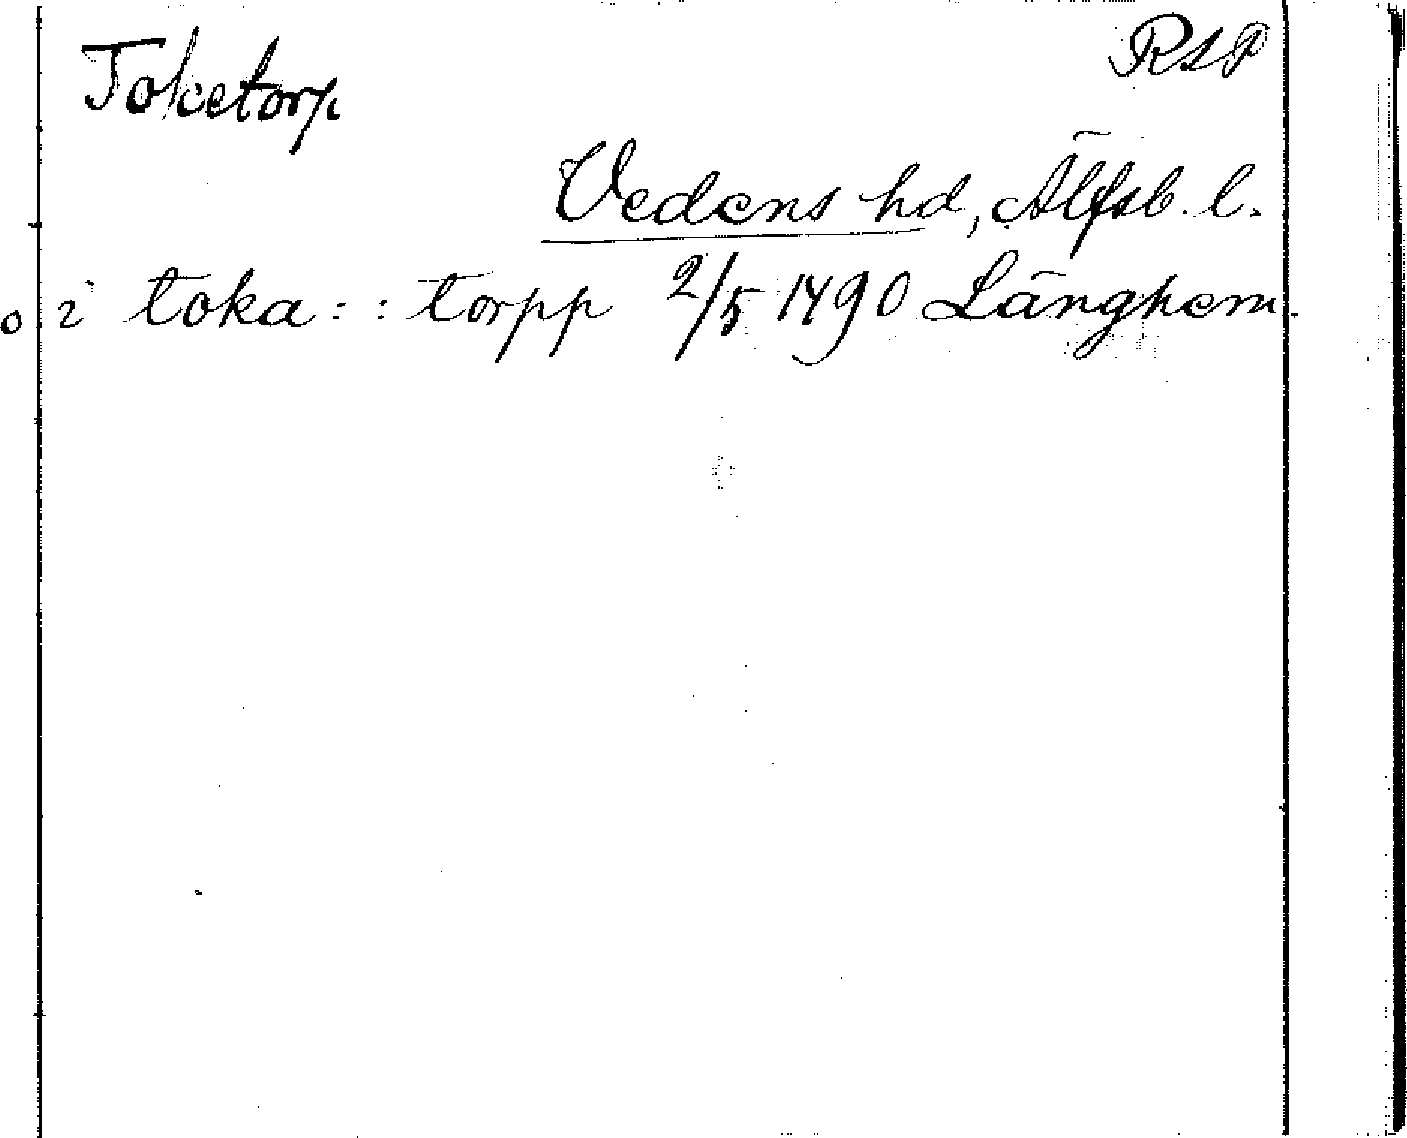 Toketorp
RAP
Vedens hd, Älfsb. l.
o i toka = : torpp 2/5 1490 Länghem.